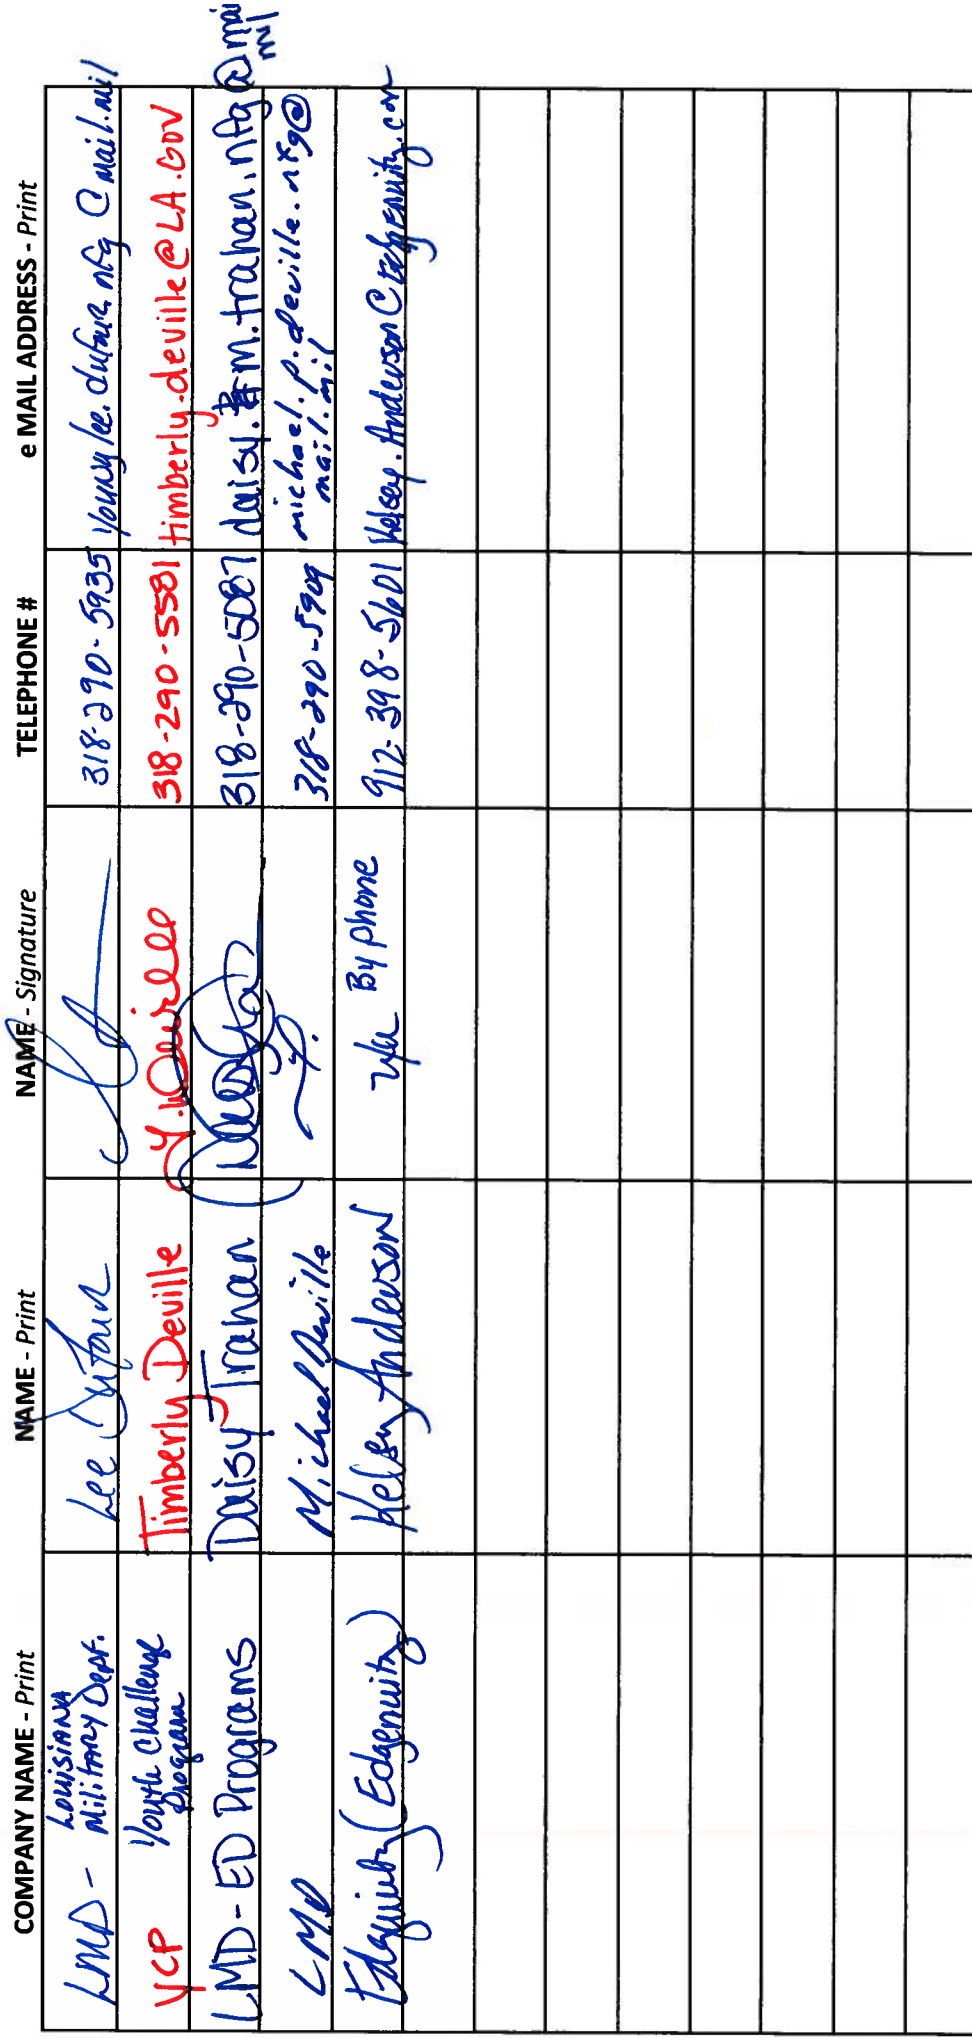 COMPANY NAME - Print NAME - Print NAME - Signature TELEPHONE # e MAIL ADDRESS - Print
LMD - Louisiana Military Dept. Lee Dufour 318-290-5935 young lee.dufour.nfg @ mail.mil
YCP Youth Challenge Program Timberly Deville T. Deville 318-290-5581 timberly.deville@LA.GOV
LMD-ED Programs Daisy Trahan 318-290-5087 daisy.m.trahan.nfg@mail mil
LMD Michael Deville 318-290-5909 michael.p.deville.nfg@ mail.mil
(Edgenuity) Kelsey Anderson By phone 912-398-5601 Kelsey.Anderson@edgenuity.com